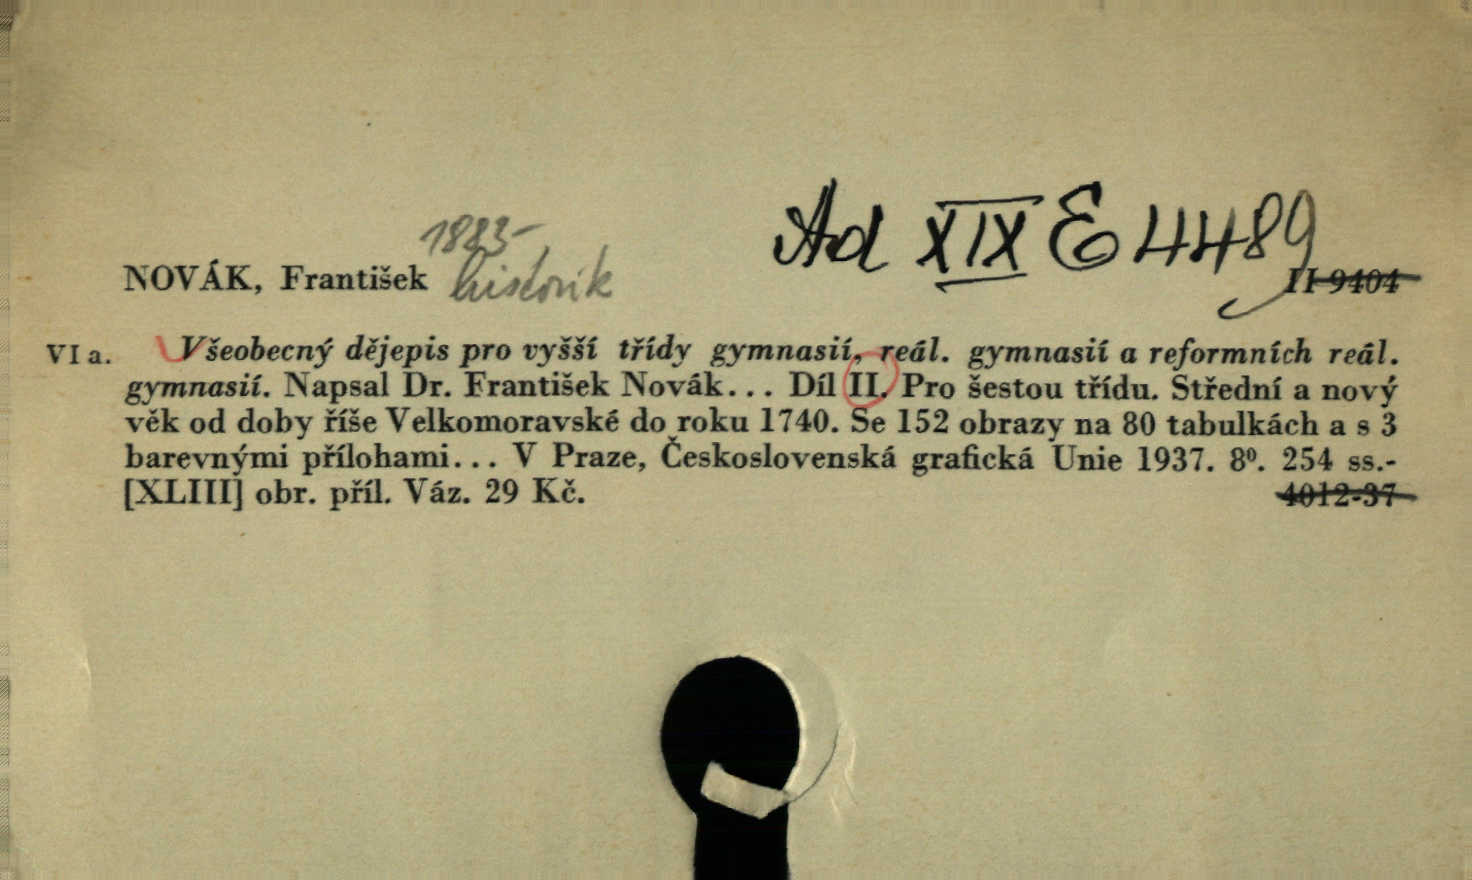 Ad XIX E 4489
1883-
NOVÁK, František historik II 9404
VI a. Všeobecný dějepis pro vyšší třídy gymnasií, reál. gymnasií a reformních reál.
gymnasií. Napsal Dr. František Novák... Díl II. Pro šestou třídu. Střední a nový
věk od doby říše Velkomoravské do roku 1740. Se 152 obrazy na 80 tabulkách a s 3
barevnými přílohami... V Praze, Československá grafická Unie 1937. 8⁰. 254 ss.-
[XLIII] obr. příl. Váz. 29 Kč. 4012-37